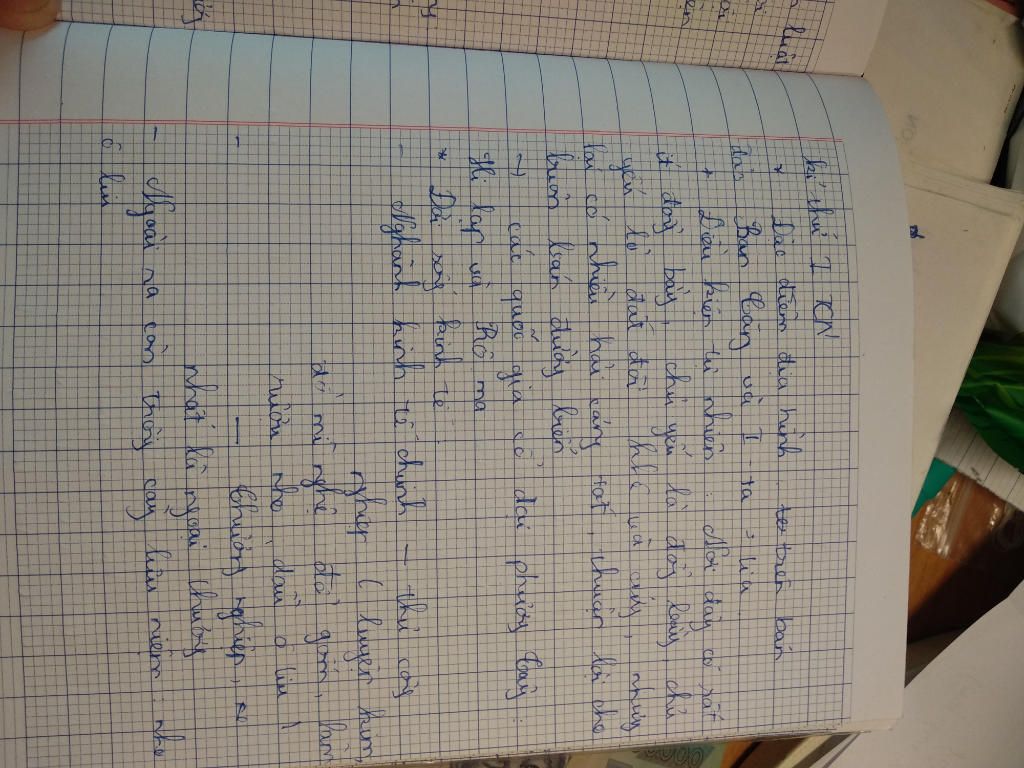 kỉ thứ I TCN
* Đặc điểm địa hình: trên bán
đảo Ban Căng và I-ta-li-a
+ Điều kiện tự nhiên: Nơi đây có rất
ít đồng bằng, chủ yếu là đồng bằng, chủ
yếu là đất đồi khô và cứng, nhưng
lại có nhiều hải cảng tốt, thuận lợi cho
buôn bán đường biển
→ các quốc gia cổ đại phương Tây:
Hi Lạp và Rô ma
* Đời sống kinh tế
- Nghành kinh tế chính - thủ công
nghiệp (luyện kim,
đồ mĩ nghệ, đồ gốm, làm
rượu nho, dầu ô liu)
- - thương nghiệp,
nhất là ngoại thương
- Ngoài ra còn trồng cây lưu niệm: nho
ô liu